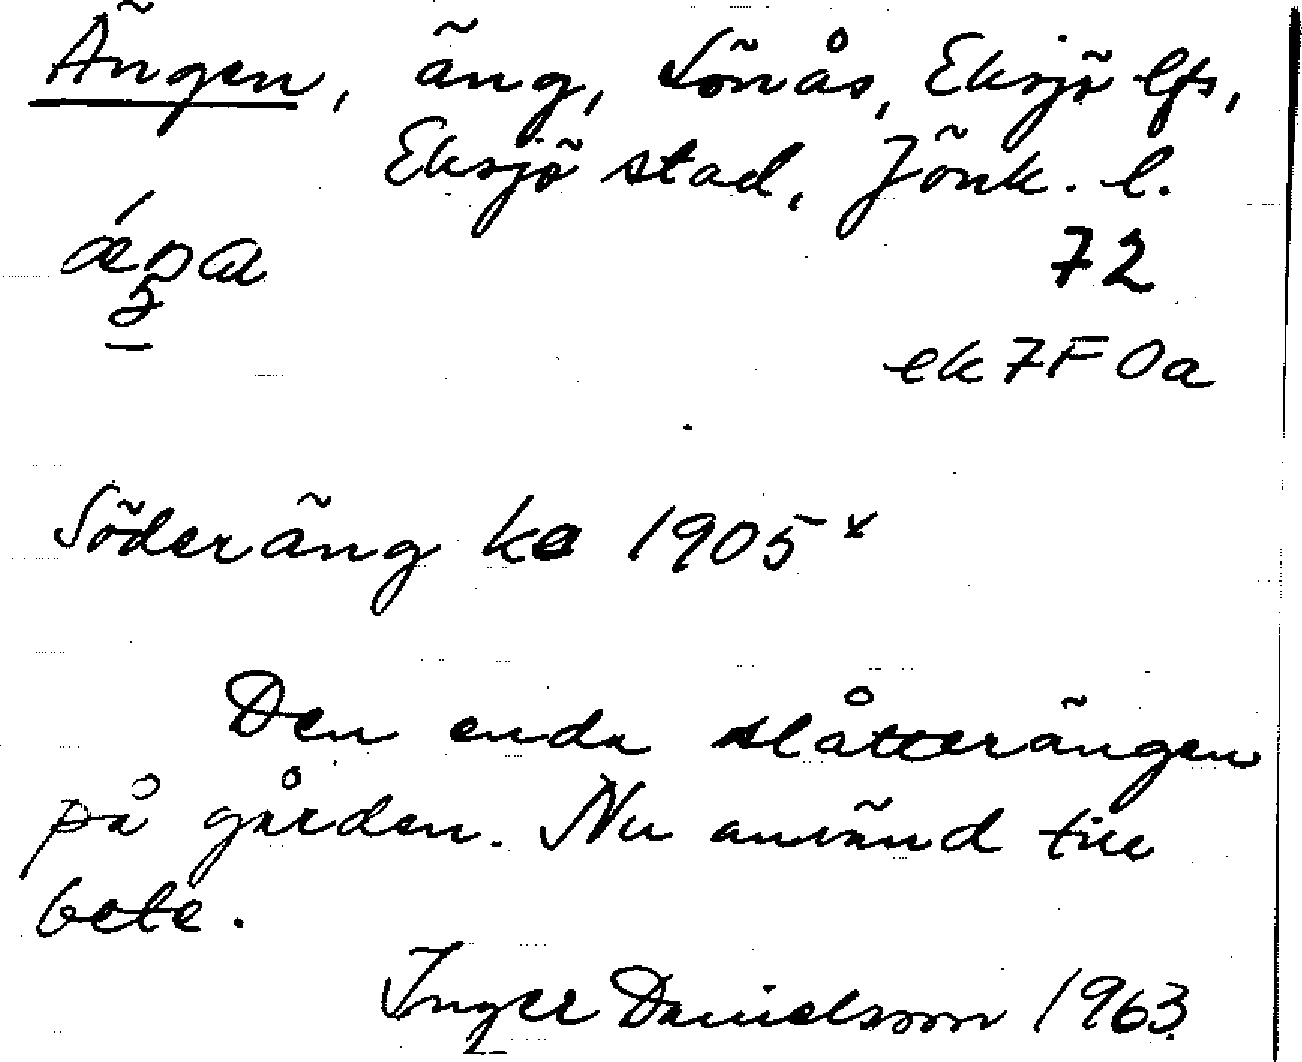 Ängen, äng, Lönås, Eksjö lfs,
Eksjö stad, Jönk. l.
72
ek 7F 0a
Söderäng ka 1905 x
Den enda slåtterängen
på gården. Nu använd till
bete.
Inger Danielsson 1963